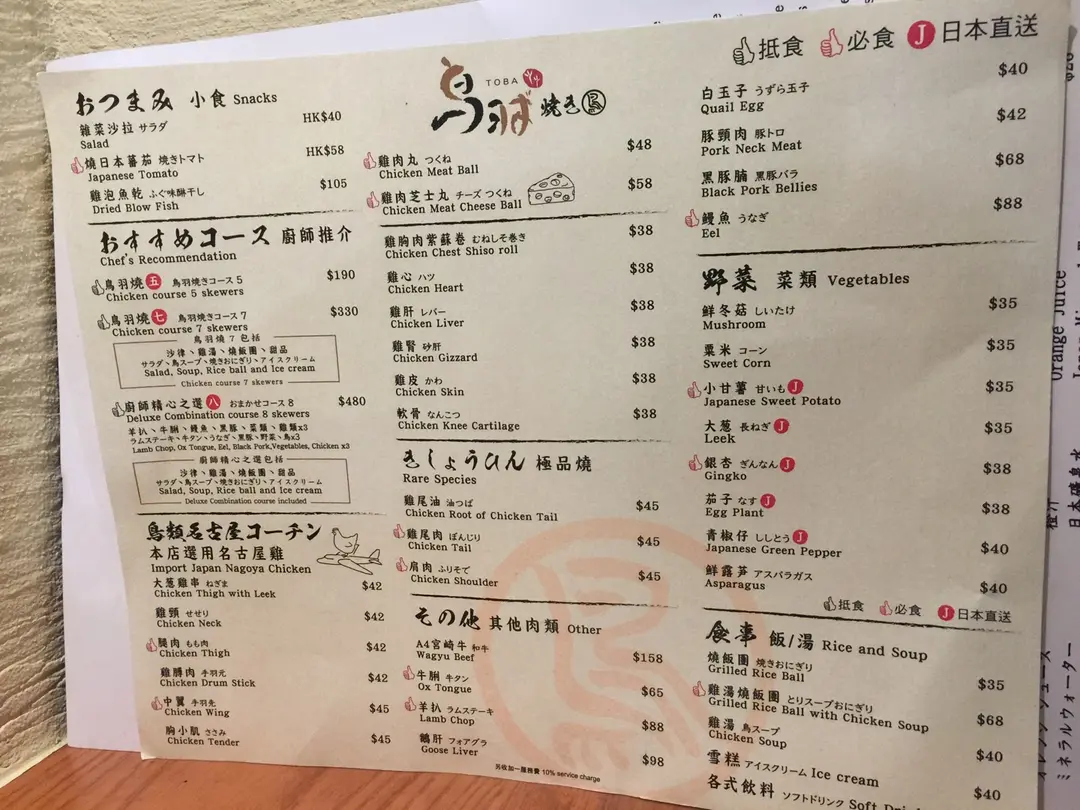 おつまみ 小食 Snacks
雜菜沙拉 サラダ HK$40
Salad
燒日本蕃茄 焼きトマト HK$58
Japanese Tomato
雞泡魚乾 ふぐ味醂干し $105
Dried Blow Fish
おすすめコース 廚師推介
Chef's Recommendation
鳥羽燒 五 鳥羽焼きコース 5 $190
Chicken course 5 skewers
鳥羽燒 七 鳥羽焼きコース 7 $330
Chicken course 7 skewers
鳥羽燒 7 包括
沙律、雞湯、燒飯團、甜品
サラダ、鳥スープ、焼きおにぎり、アイスクリーム
Salad, Soup, Rice ball and Ice cream
Chicken course 7 skewers
廚師精心之選 八 おまかせコース 8 $480
Deluxe Combination course 8 skewers
羊扒、牛脷、鰻魚、黑豚、菜類、雞類x3
ラムステーキ、牛タン、うなぎ、黒豚、野菜、鳥x3
Lamb Chop, Ox Tongue, Eel, Black Pork,Vegetables, Chicken x3
廚師精心之選包括
沙律、雞湯、燒飯團、甜品
サラダ、鳥スープ、焼きおにぎり、アイスクリーム
Salad, Soup, Rice ball and Ice cream
Deluxe Combination course included
鳥類名古屋コーチン
本店選用名古屋雞
Import Japan Nagoya Chicken
大葱雞串 ねぎま $42
Chicken Thigh with Leek
雞頸 せせり $42
Chicken Neck
腿肉 もも肉 $42
Chicken Thigh
雞膊肉 手羽元 $42
Chicken Drum Stick
中翼 手羽先 $45
Chicken Wing
胸小肌 ささみ $45
Chicken Tender
鳥羽 TOBA 焼き鳥
雞肉丸 つくね $48
Chicken Meat Ball
雞肉芝士丸 チーズ つくね $58
Chicken Meat Cheese Ball
雞胸肉紫蘇卷 むねしそ巻き $38
Chicken Chest Shiso roll
雞心 ハツ $38
Chicken Heart
雞肝 レバー $38
Chicken Liver
雞腎 砂肝 $38
Chicken Gizzard
雞皮 かわ $38
Chicken Skin
軟骨 なんこつ $38
Chicken Knee Cartilage
きしょうひん 極品燒
Rare Species
雞尾油 油つぼ $45
Chicken Root of Chicken Tail
雞尾肉 ぼんじり $45
Chicken Tail
肩肉 ふりそで $45
Chicken Shoulder
その他 其他肉類 Other
A4宮崎牛 和牛 $158
Wagyu Beef
牛脷 牛タン $65
Ox Tongue
羊扒 ラムステーキ $88
Lamb Chop
鵝肝 フォアグラ $98
Goose Liver
另收加一服務費 10% service charge
抵食 必食 J 日本直送
白玉子 うずら玉子 $40
Quail Egg
豚頸肉 豚トロ $42
Pork Neck Meat
黑豚腩 黒豚バラ $68
Black Pork Bellies
鰻魚 うなぎ $88
Eel
野菜 菜類 Vegetables
鮮冬菇 しいたけ $35
Mushroom
粟米 コーン $35
Sweet Corn
小甘薯 甘いも J $35
Japanese Sweet Potato
大葱 長ねぎ J $35
Leek
銀杏 ぎんなん J $38
Gingko
茄子 なす J $38
Egg Plant
青椒仔 ししとう J $40
Japanese Green Pepper
鮮露笋 アスパラガス $40
Asparagus
抵食 必食 J 日本直送
食事 飯/湯 Rice and Soup
燒飯團 焼きおにぎり $35
Grilled Rice Ball
雞湯燒飯團 とりスープおにぎり $68
Grilled Rice Ball with Chicken Soup
雞湯 鳥スープ $40
Chicken Soup
雪糕 アイスクリーム Ice cream $40
各式飲料 ソフトドリンク Soft
Orange Juice
橙汁
ミネラルウォーター